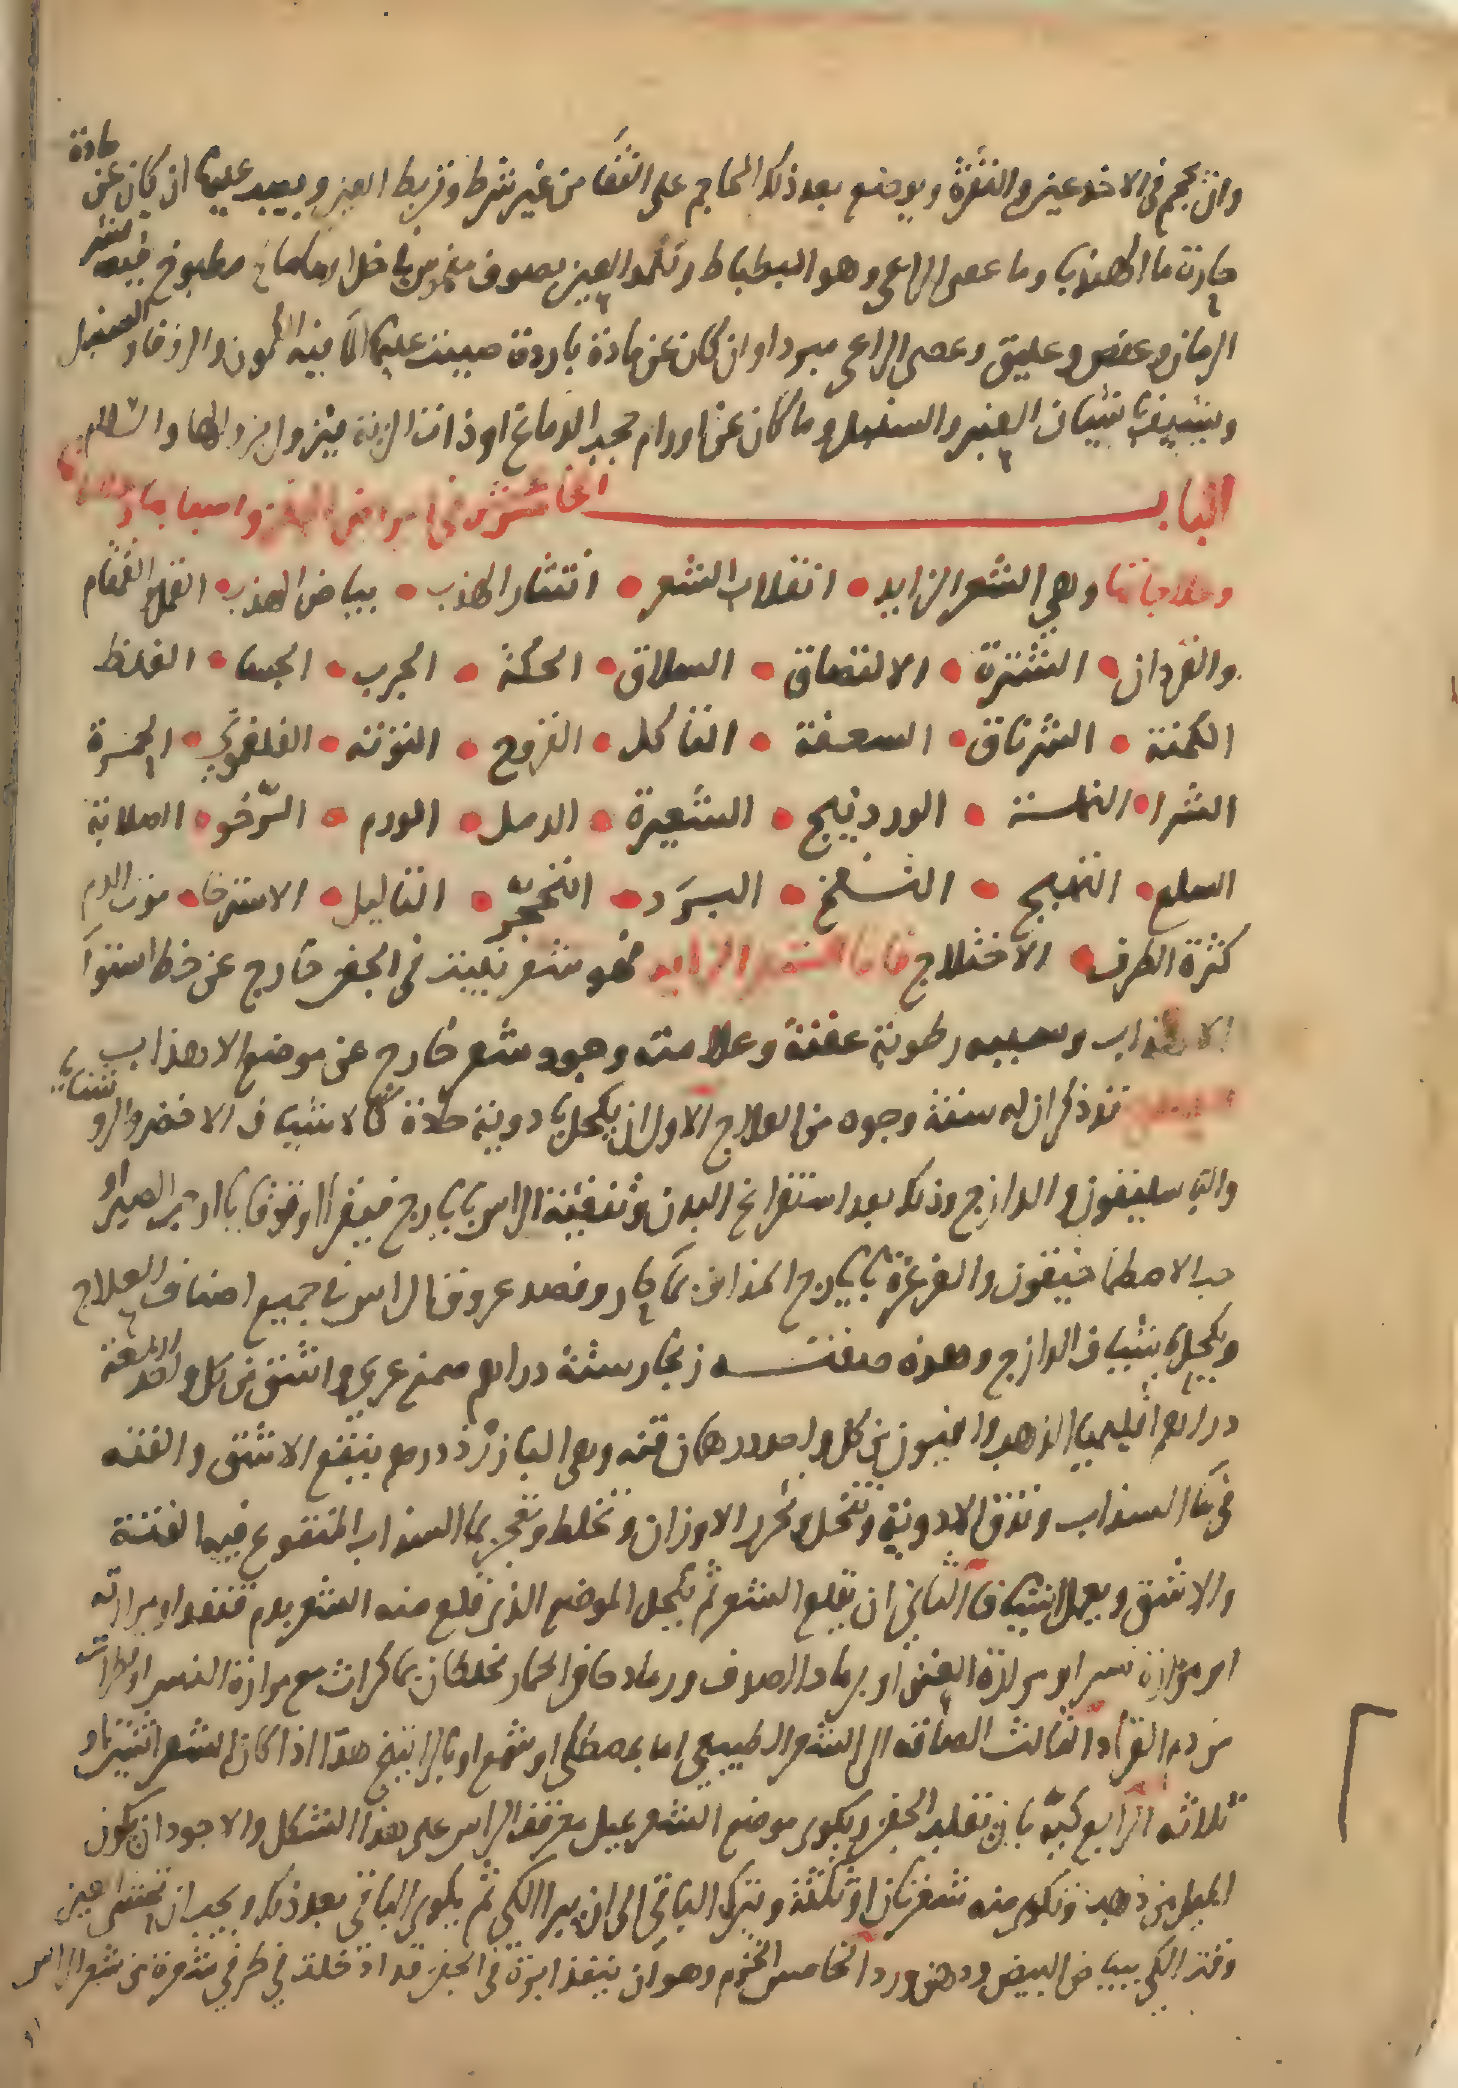 وان يحجم في الاخدعين والنقرة ويوضع بعد ذلك المحاجم على القفا من غير شرط وتربط العين ويصب عليها ان كان عن مادة
حارة ماء الهندبا وما عصى الراعي وهو البطباط وتكمد العين بصوف مغموس في خل مطبوخ فيه قشر
الرمان وعفص وعليق وعصى الراعي مبردا وان كان عن مادة باردة صببت عليها الماء فيه الكمون والزوفا والسنبل
ويشيف بشياف العنبر والسنبل وما كان عن اورام حجب الدماغ او ذات الرية فيزول بزوالها والسلام
البا ب الخامس في امراض الجفن واسبابها
وعلاجاتها وهي الشعر الزايد • انقلاب الشعر • انتثار الهدب • بياض الهدب • القمل القمقام
والقردان • الشترة • الالتصاق • السلاق • الحكة • الجرب • الجسا • الغلظ
الكمنة • الشرناق • السعفة • التاكل • القروح • التوتة • الفلغموني • الجمرة
الشرا • النملة • الوردينج • الشعيرة • الدمل • الورم • الرخو • الصلابة
السلع • التهبج • النفخ • البرد • التحجر • الثاليل • الاسترخا • موت الدم
كثرة الطرف • الاختلاج فاما الشعر الزايد فهو شعر ينبت في الجفن خارج عن خط استوا
الاهداب وسببه رطوبة عفنة وعلامته وجود شعر خارج عن موضع الاهداب
نذكر ان له ستة وجوه من العلاج الاول ان يكحل بادوية حادة كالاشياف الاخضر والروشنايا
والباسليقون والدازج وذلك بعد استفراغ البدن وتنقية الراس بايارج فيقرا او قوقايا او شربة الصبر او
حب الاصطماخيقون والغرغرة بايارج المذاف بماء حار وفصد عروق الراس في جميع اصناف العلاج
ويكحل بشياف الدازج وهذه صفته زنجار ستة دراهم صمغ عربي واشق من كل واحد اربعة
دراهم اقليميا الذهب وافيون من كل واحد درهمان قنه وهي البازرذ درهم ينقع الاشق والقنه
في ماء السذاب وتدق الادوية وتنخل وتحرر الاوزان وتخلط وتعجن بماء السذاب المنقوع فيه القنة
والاشق ويعمل اشياف الثاني ان يقلع الشعر ثم يكحل الموضع الذي قلع منه الشعر بدم قنفذ او مرارته
او مرارة نسر او مرارة العنز او برماد الصدف ورماد حافر الحمار يخلطان بماء كراث مع مرارة النسر او قطرات
من دم القراد الثالث الصاقه الى الشعر الطبيعي اما بمصطكي او شمع او بالراتينج هذا اذا كان الشعر اثنين او
ثلاثة الرابع كيه بان تقلب الجفن ويكوى موضع الشعر بميل معقف الراس على هذا الشكل والاجود ان يكون
الميل من ذهب وتكوى منه شعرتان او ثلثة ويترك الباقي الى ان يبرا الكي ثم يكوى الباقي بعد ذلك ويجب ان تحشى العين
وقت الكي ببياض البيض ودهن ورد الخامس الخزم وهو ان ينفذ ابرة في الجفن قد ادخلت في طرفي شعرة من شعر الراس